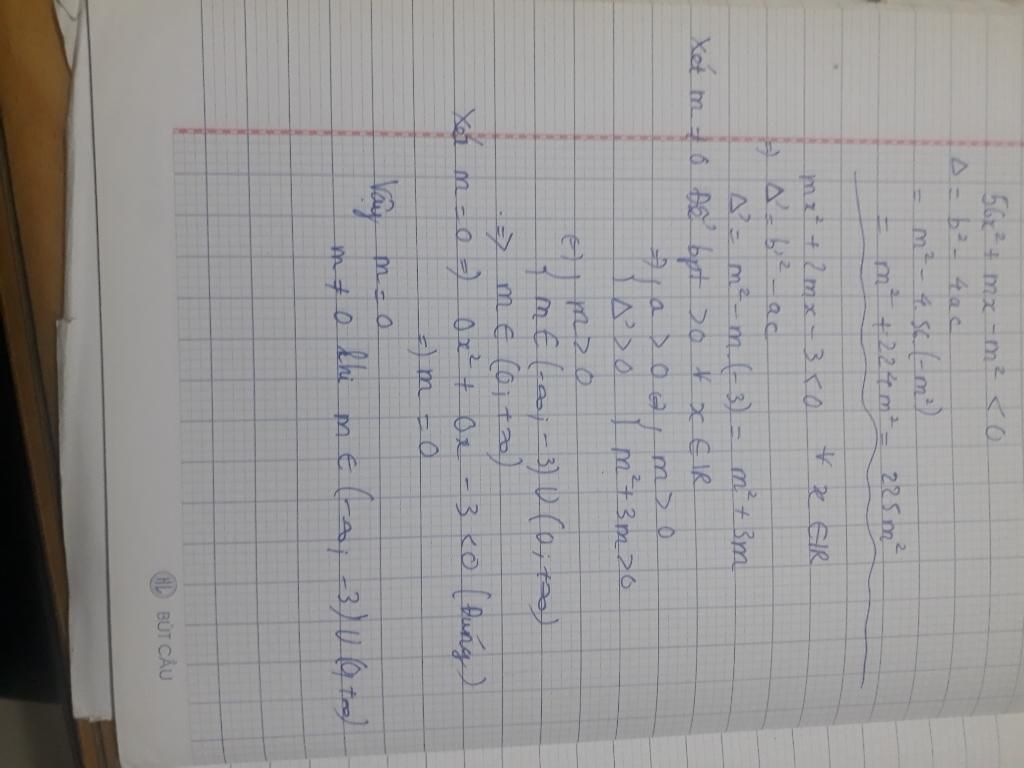 56x² + mx - m² < 0
Δ = b² - 4ac
= m² - 4.56(-m²)
= m² + 224m² = 225m²
mx² + 2mx - 3 < 0 ∀ x ∈ IR
=) Δ' = b'² - ac
Δ' = m² - m.(-3) = m² + 3m
Xét m ≠ 0 Để bpt > 0 ∀ x ∈ IR
=) { a > 0 (=) { m > 0
{ Δ' > 0 { m² + 3m > 0
(=) { m > 0
{ m ∈ (-∞; -3) U (0; +∞)
=> m ∈ (0; +∞)
Xét m = 0 =) 0x² + 0x - 3 < 0 (Đúng)
=) m = 0
Vậy m = 0
m ≠ 0 khi m ∈ (-∞; -3) U (0; +∞)
HL BÚT CẦU